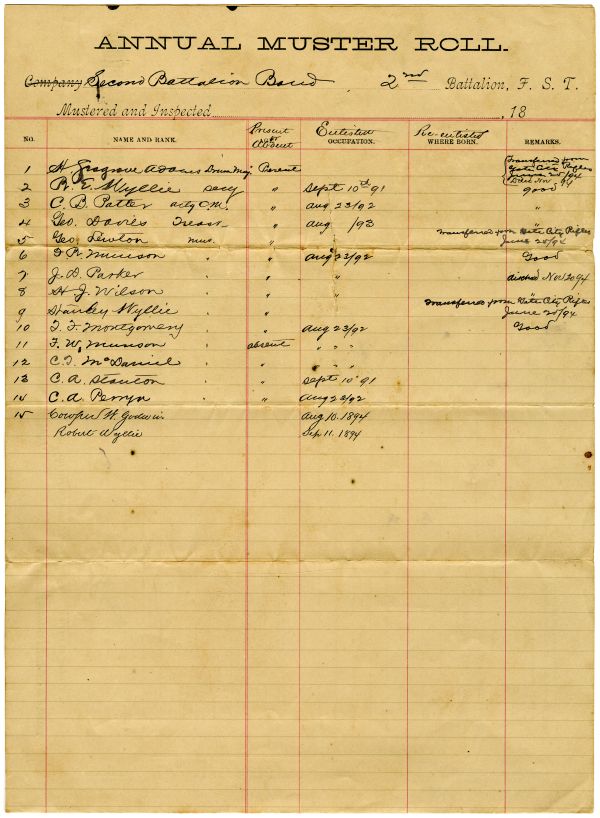 ANNUAL MUSTER ROLL.
Company Second Battalion Band, 2nd Battalion, F. S. T.
Mustered and Inspected , 18
NO. NAME AND RANK. Present or Absent Enlisted OCCUPATION. Re-enlisted WHERE BORN. REMARKS.
Transferred from
Gate City Rifles
1 H Adams Drum Maj. Present June 25/94
Nov 94
2 R. E. Wyllie secy " Sept 10th 91 good
3 C. B. Patter actg Q.M. " aug 23/92 "
4 Geo. Davies Treasr. " aug /93 "
Transferred from Gate City Rifles
5 Geo. mus. " June 25/94
6 Munson " " aug 23/92 Good
7 J. D. Parker " " " Nov 20 94
8 H. J. Wilson " " "
Transferred from Gate City Rifles
9 Stanley Wyllie " " June 20/94
10 T. F. Montgomery " " aug 23/92 Good
11 F. W. Munson " absent " " "
12 C. T. McDaniel " " " "
13 C. A. Stanton " " sept 10 91
14 C. A. " " aug 23/92
15 Cowper W. Godwin aug 10. 1894
Robert Wyllie Sep 11. 1894